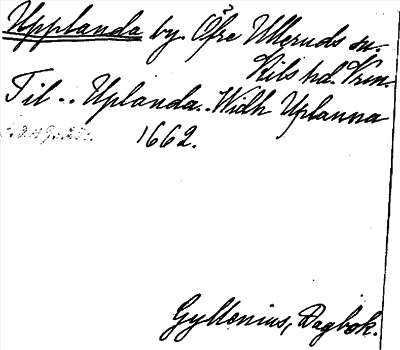 Upplanda by. Öfre Ulleruds sn.
Kils hd. Vrm.
Til .. Uplanda. Widh Uplanna
1662.
Gyllenius, Dagbok.